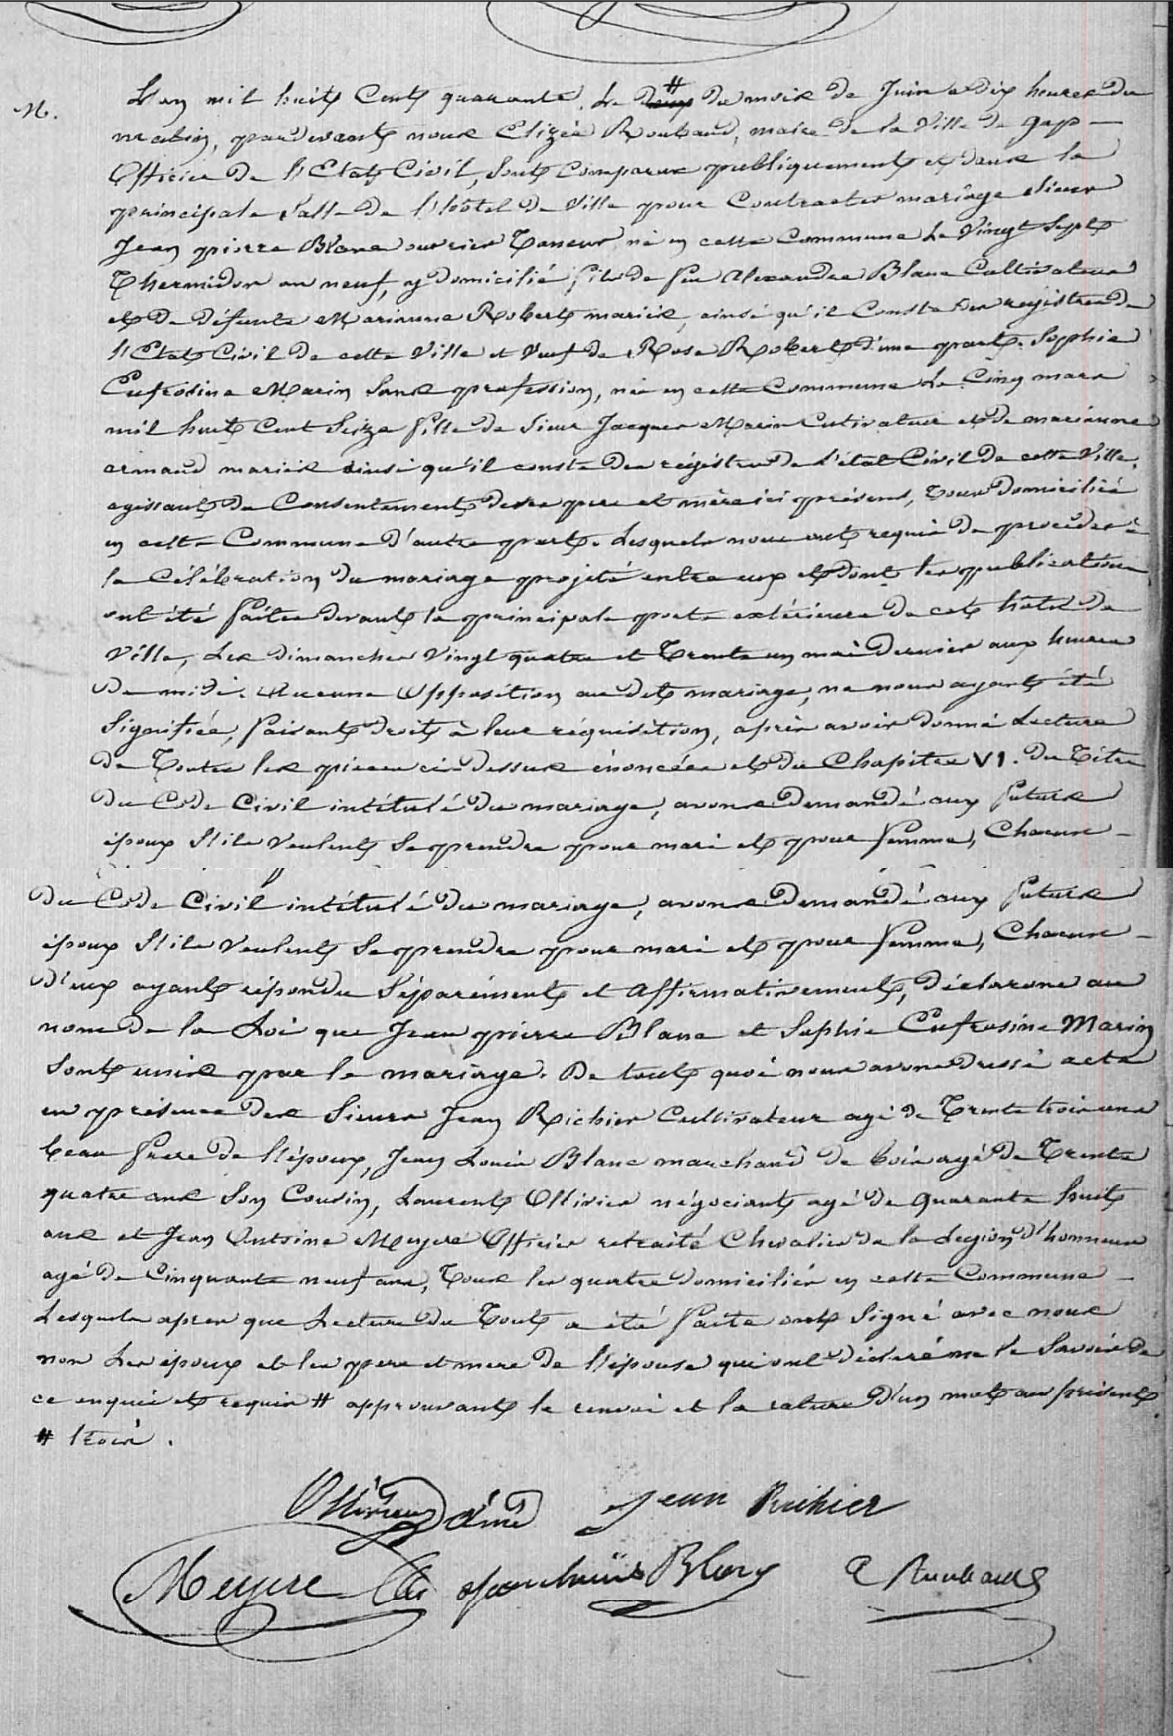 M.
L'an mil huit Cent quarante, Le # deux du mois de Juin a Dix heures du
matin, pardevant nous Elizée Roubaud, maire de la Ville de gap —
Officier de l'Etat Civil, sont Comparus publiquement et dans la
principale Salle de l'hôtel de Ville pour Contracter mariage sieur
Jean pierre Blanc ouvrier Taneur né en cette Commune Le Vingt Sept
Thermidor an neuf, y domicilié, fils de feu Alexandre Blanc Cultivateur
et de défunte Marianne Robert mariés, ainsi qu'il Conste des registres de
l'Etat Civil de cette Ville et Veuf de Rose Robert d'une part. Sophie
Eufrosine Marin Sans profession, née en cette Commune Le Cinq mars
mil huit Cent Seize fille de Sieur Jacques Marin Cutivateur et de marianne
armand mariés ainsi qu'il conste des régistres de l'état Civil de cette Ville,
agissant du Consentement de ses pere et mère ici présens, Tous domiciliés
en cette Commune d'autre part. Lesquels nous ont requis de procéder à
la Célébration du mariage projeté entre eux et dont les publications
ont été faites devant la principale porte extérieure de cet hôtel de
Ville, Les dimanches Vingt quatre et Trente un mai dernier aux heures
de midi. Aucune Opposition au dit mariage, ne nous ayant été
Signifiée, faisant droit à leur réquisition, après avoir donné Lecture
de Toutes les pieces ci-dessus énoncées et du Chapitre VI. du Titre
du Code Civil intitulé du mariage, avons demandé aux futurs
époux S'ils Veulent Se prendre pour mari et pour femme, Chacun —
du Code Civil intitulé du mariage, avons demandé aux futurs
époux S'ils Veulent Se prendre pour mari et pour femme, Chacun —
d'eux ayant répondu Séparément et Affirmativement, déclarons au
nom de la Loi que Jean pierre Blanc et Sophie Eufrosine Marin
Sont unis par le mariage. De tout quoi nous avons dressé acte
en présence des Sieurs Jean Richier Cultivateur agé de Trente trois ans
beau frere de l'époux, Jean Louis Blanc marchand de bois agé de Trente
quatre ans Son Cousin, Laurent Ollivier négociant agé de quarante huit
ans et Jean Antoine Meyere Officier retraité Chevalier de la Legion d'honneur
agé de Cinquante neuf ans, Tous les quatre domiciliés en cette Commune —
Lesquels apres que Lecture du Tout a été faite ont Signé avec nous
non Les époux et les pere et mere de l'épouse qui ont déclaré ne le Savoir de
ce enquis et requis # approuvant le renvoi et la rature d'un mot au présent
# trois.
Ollivier ainé Jean Richier
Meyere Jean Louis Blanc E Roubaud